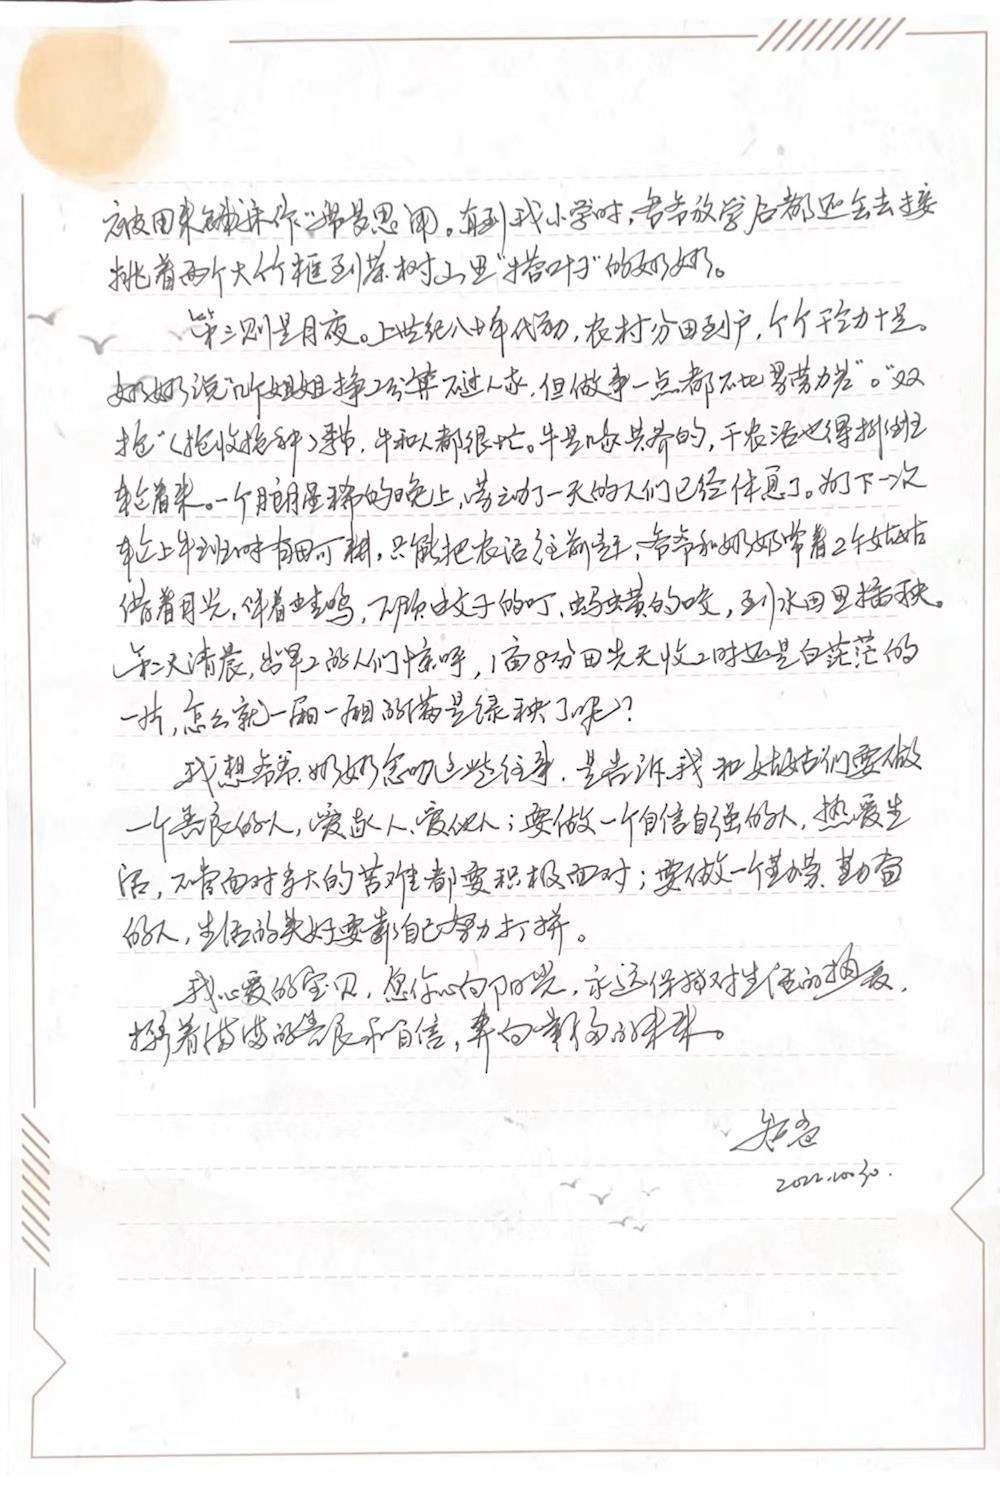 被用来铺床作"席梦思"用。直到我小学时,爷爷放学后都还会去接
挑着两个大竹框到茶树山里"搭叶子"的奶奶。
第三则是月夜。上世纪八十年代初,农村分田到户,个个干劲十足。
奶奶说"几个姐姐挣工分算不过人家,但做事一点都不比男劳力差"。"双
抢"(抢收抢种)季节,牛和人都很忙。牛是几家共养的,干农活也得排班
轮着来。一个月朗星稀的晚上,劳动了一天的人们已经休息了。为了下一次
轮上牛班时有田可耕,只能把农活往前赶,爷爷和奶奶带着2个姑姑
借着月光,伴着蛙鸣,不顾蚊子的叮,蚂蟥的咬,到水田里插秧。
第二天清晨,出早工的人们惊呼,1亩8分田先天收工时还是白茫茫的
一片,怎么就一厢一厢的满是绿秧了呢?
我想爷爷、奶奶念叨这些往事,是告诉我和姑姑们要做
一个善良的人,爱家人、爱他人;要做一个自信自强的人,热爱生
活,不管面对多大的苦难都要积极面对;要做一个勤劳、勤奋
的人,生活的美好要靠自己努力打拼。
我心爱的宝贝,愿你心向阳光,永远保持对生活的热爱,
揣着满满的善良和自信,奔向幸福的未来。
2022.10.30.